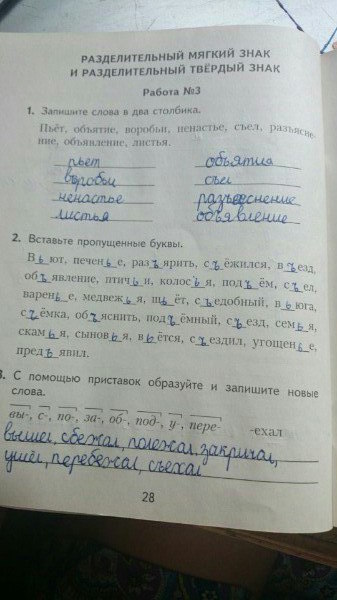 РАЗДЕЛИТЕЛЬНЫЙ МЯГКИЙ ЗНАК
И РАЗДЕЛИТЕЛЬНЫЙ ТВЁРДЫЙ ЗНАК
Работа №3
1. Запишите слова в два столбика.
Пьёт, объятие, воробьи, ненастье, съел, разъясне-
ние, объявление, листья.
пьет объятия
воробьи съел
ненастье разъеснение
листья объявление
2. Вставьте пропущенные буквы.
Вьют, печенье, разъярить, съёжился, въезд,
объявление, птичья, колосья, подъём, съел,
варенье, медвежья, шьёт, съедобный, вьюга,
съёмка, объяснить, подъёмный, съезд, семья,
скамья, сыновья, вьётся, съездил, угощенье,
предъявил.
3. С помощью приставок образуйте и запишите новые
слова.
вы-, с-, по-, за-, об-, под-, у-, пере- -ехал
вышел, сбежал, полежал, закричал,
ушёл, перебежал, съехал
28